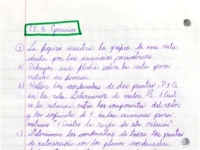 11.5 Ejercicios
La figura muestra la grafica de una recta
dada por las ecuaciones parametricas
a) Dibujar una flecha sobre la recta para
indicar su
b) Hallar las coordenadas de dos puntos, P y Q
en la recta. Determinar el vector PQ. Cual
es la relacion entre las componentes del vector
y los coeficientes de t en las ecuaciones
parametricas? Cual es la razon de esta relacion?
c) Determinar las coordenadas de todos los puntos
de interseccion con los planos coordenados